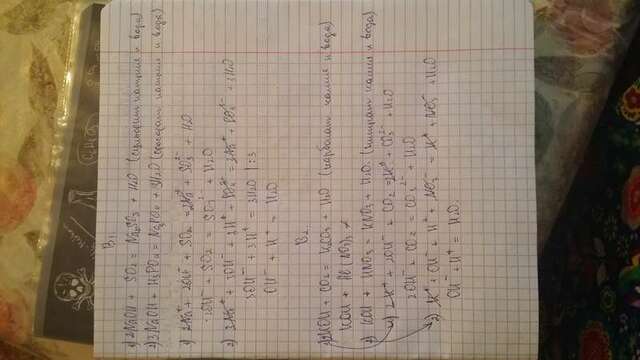 В1.
1) 2NaOH + SO2 = Na2SO3 + H2O (сульфит натрия и вода)
2) 3NaOH + H3PO4 = Na3PO4 + 3H2O (фосфат натрия и вода)
1) 2Na+ + 2OH- + SO2 = 2Na+ + SO3 2- + H2O
2OH- + SO2 = SO3 2- + H2O
2) 3Na+ + 3OH- + 3H+ + PO4 3- = 3Na+ + PO4 3- + 3H2O
3OH- + 3H+ = 3H2O | :3
OH- + H+ = H2O
В2.
1) 2KOH + CO2 = K2CO3 + H2O (карбонат калия и вода)
KOH +
2) KOH + HNO3 = KNO3 + H2O (нитрат калия и вода)
1) 2K+ + 2OH- + CO2 = 2K+ + CO3 2- + H2O
2OH- + CO2 = CO3 2- + H2O
2) K+ + OH- + H+ + NO3- = K+ + NO3- + H2O
OH- + H+ = H2O